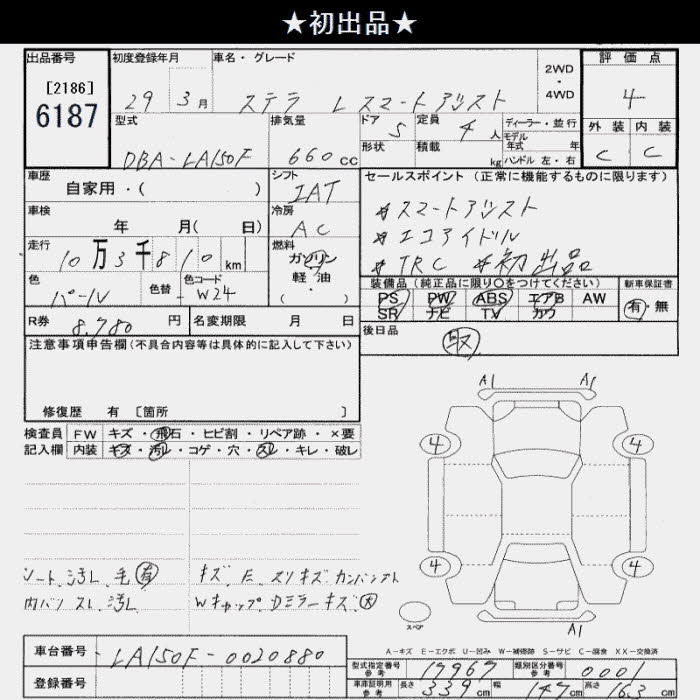 ★初出品★
出品番号 [2186] 6187
初度登録年月 29 3月
車名・グレード ステラ L スマートアシスト
2WD・4WD
評価点 4
外装 内装
C C
型式 DBA-LA150F
排気量 660cc
ドア 5
形状
定員 4人
積載 kg
ディーラー・並行
モデル年式 年
ハンドル 左・右
車歴 自家用・( )
シフト IAT
車検 年 月( 日)
冷房 AC
走行 10万3千810km
燃料 ガソリン 軽油・( )
色 パール
色替
色コード W24
R券 8.780円
名変期限 月 日
セールスポイント(正常に機能するものに限ります)
★スマートアシスト
★エコアイドル
★TRC ★初出品
装備品(純正品に限り○をつけてください)
PS PW ABS エアB AW
SR ナビ TV カワ
新車保証書
有・無
後日品
注意事項申告欄(不具合内容等は具体的に記入して下さい)
修復歴 有 [箇所 ]
検査員記入欄
FW キズ・飛石・ヒビ割・リペア跡・×要
内装 キズ・汚レ・コゲ・穴・スレ・キレ・破レ
シート汚レ、毛有
内バリ スレ、汚レ
キズ、E、スリキズ カンバンアト
Wキャップ、Dミラーキズ大
A1 A1
4 4
4 4
A1
スペア
A-キズ E-エクボ U-凹み W-補修跡 S-サビ C-腐食 XX-交換済
車台番号 LA150F-0020880
登録番号
型式指定番号 参考 17967
類別区分番号 参考 0001
車庫証明用 参考 長さ 339cm 幅 147cm 高さ 163cm